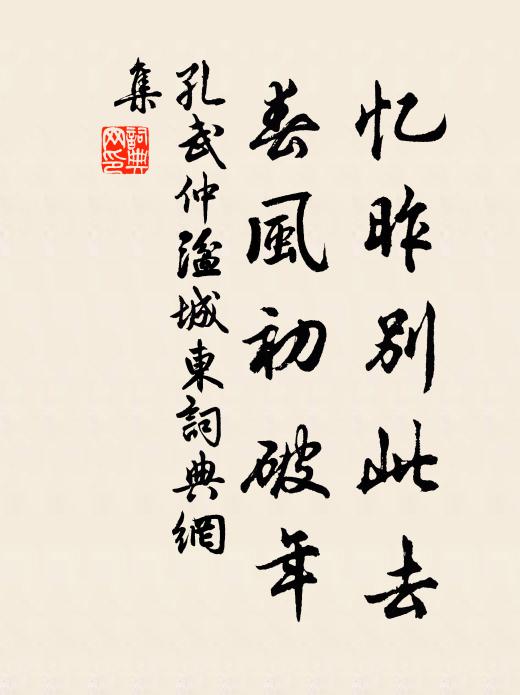 忆昨别此去
春風初破年
孔武仲湓城東詞典網
集
詞典網印